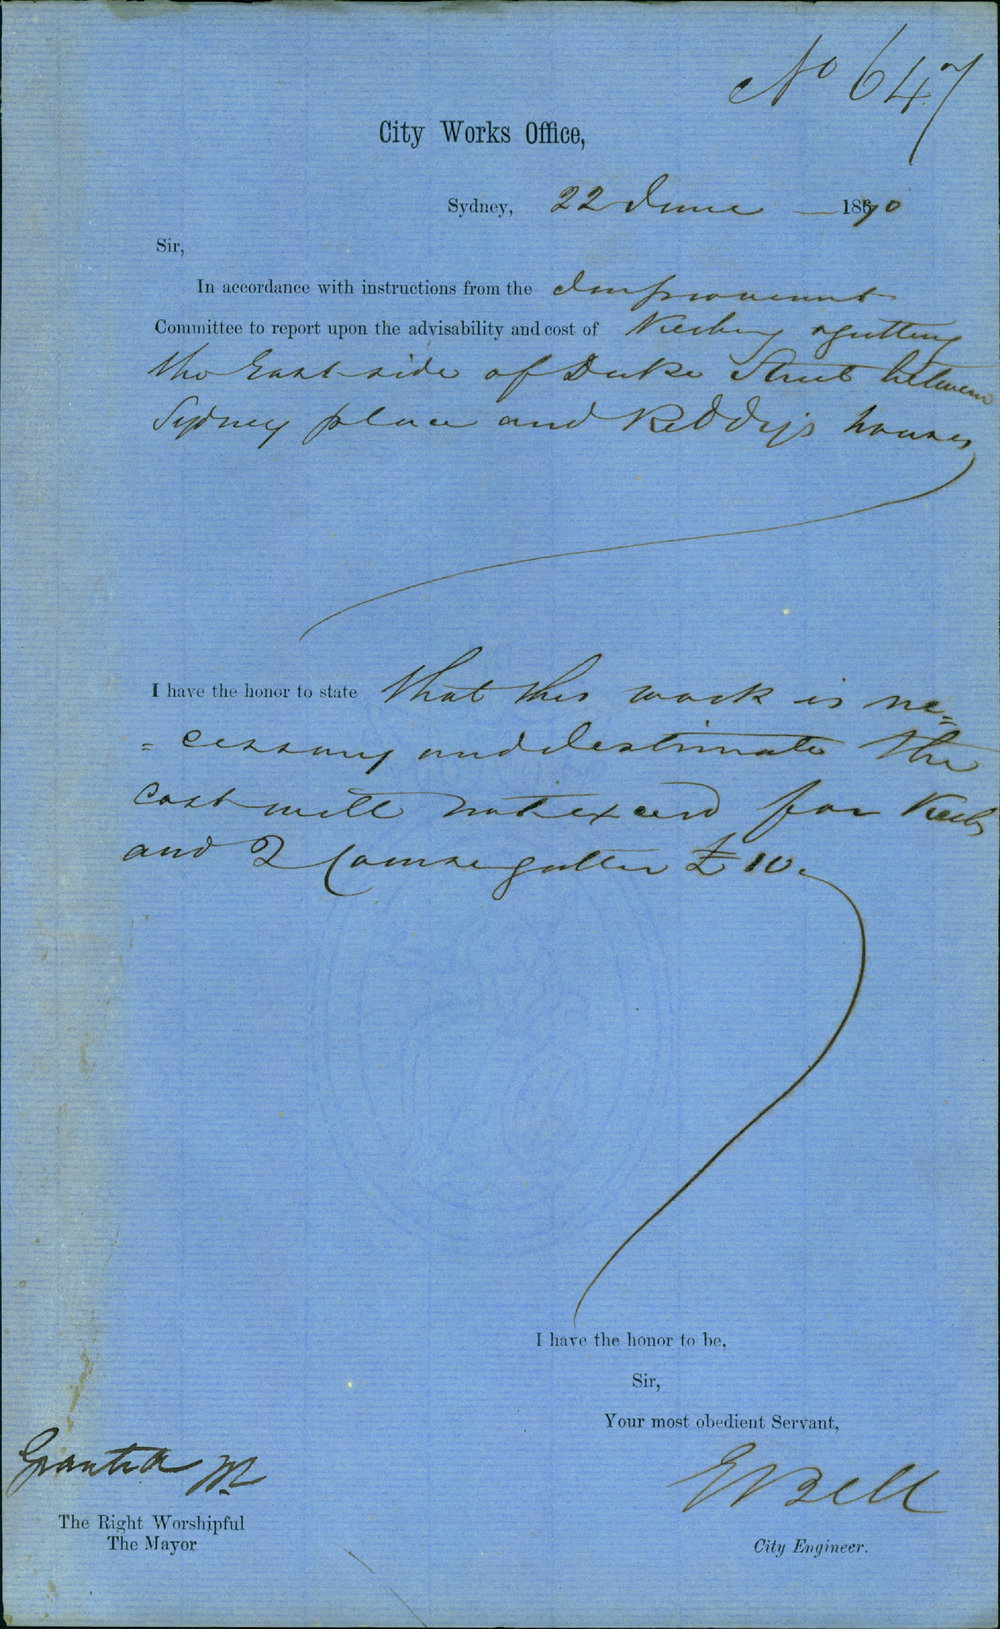 No 647
City Works Office,
Sydney, 22 June 1870
Sir,
In accordance with instructions from the Improvement
Committee to report upon the advisability and cost of Kerbing & guttering
the East side of Duke Street between
Sydney place and Reddy's houses
I have the honor to state that this work is ne=
=cessary and I estimate the
cost will not exceed for Kerb
and 2 Course gutter £10.
I have the honor to be,
Sir,
Your most obedient Servant,
Granted M.
EBell
The Right Worshipful
The Mayor
City Engineer.